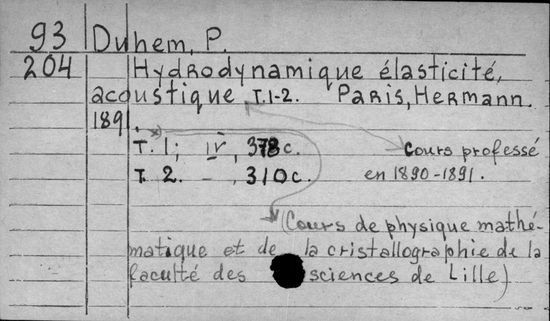 93 Duhem, P.
204 Hydrodynamique élasticité,
acoustique T.1-2. Paris, Hermann.
1891.
T. 1; IV, 378 c. Cours professé
T. 2. – , 310 c. en 1890-1891.
(Cours de physique mathé-
matique et de la cristallographie de la
faculté des sciences de Lille)